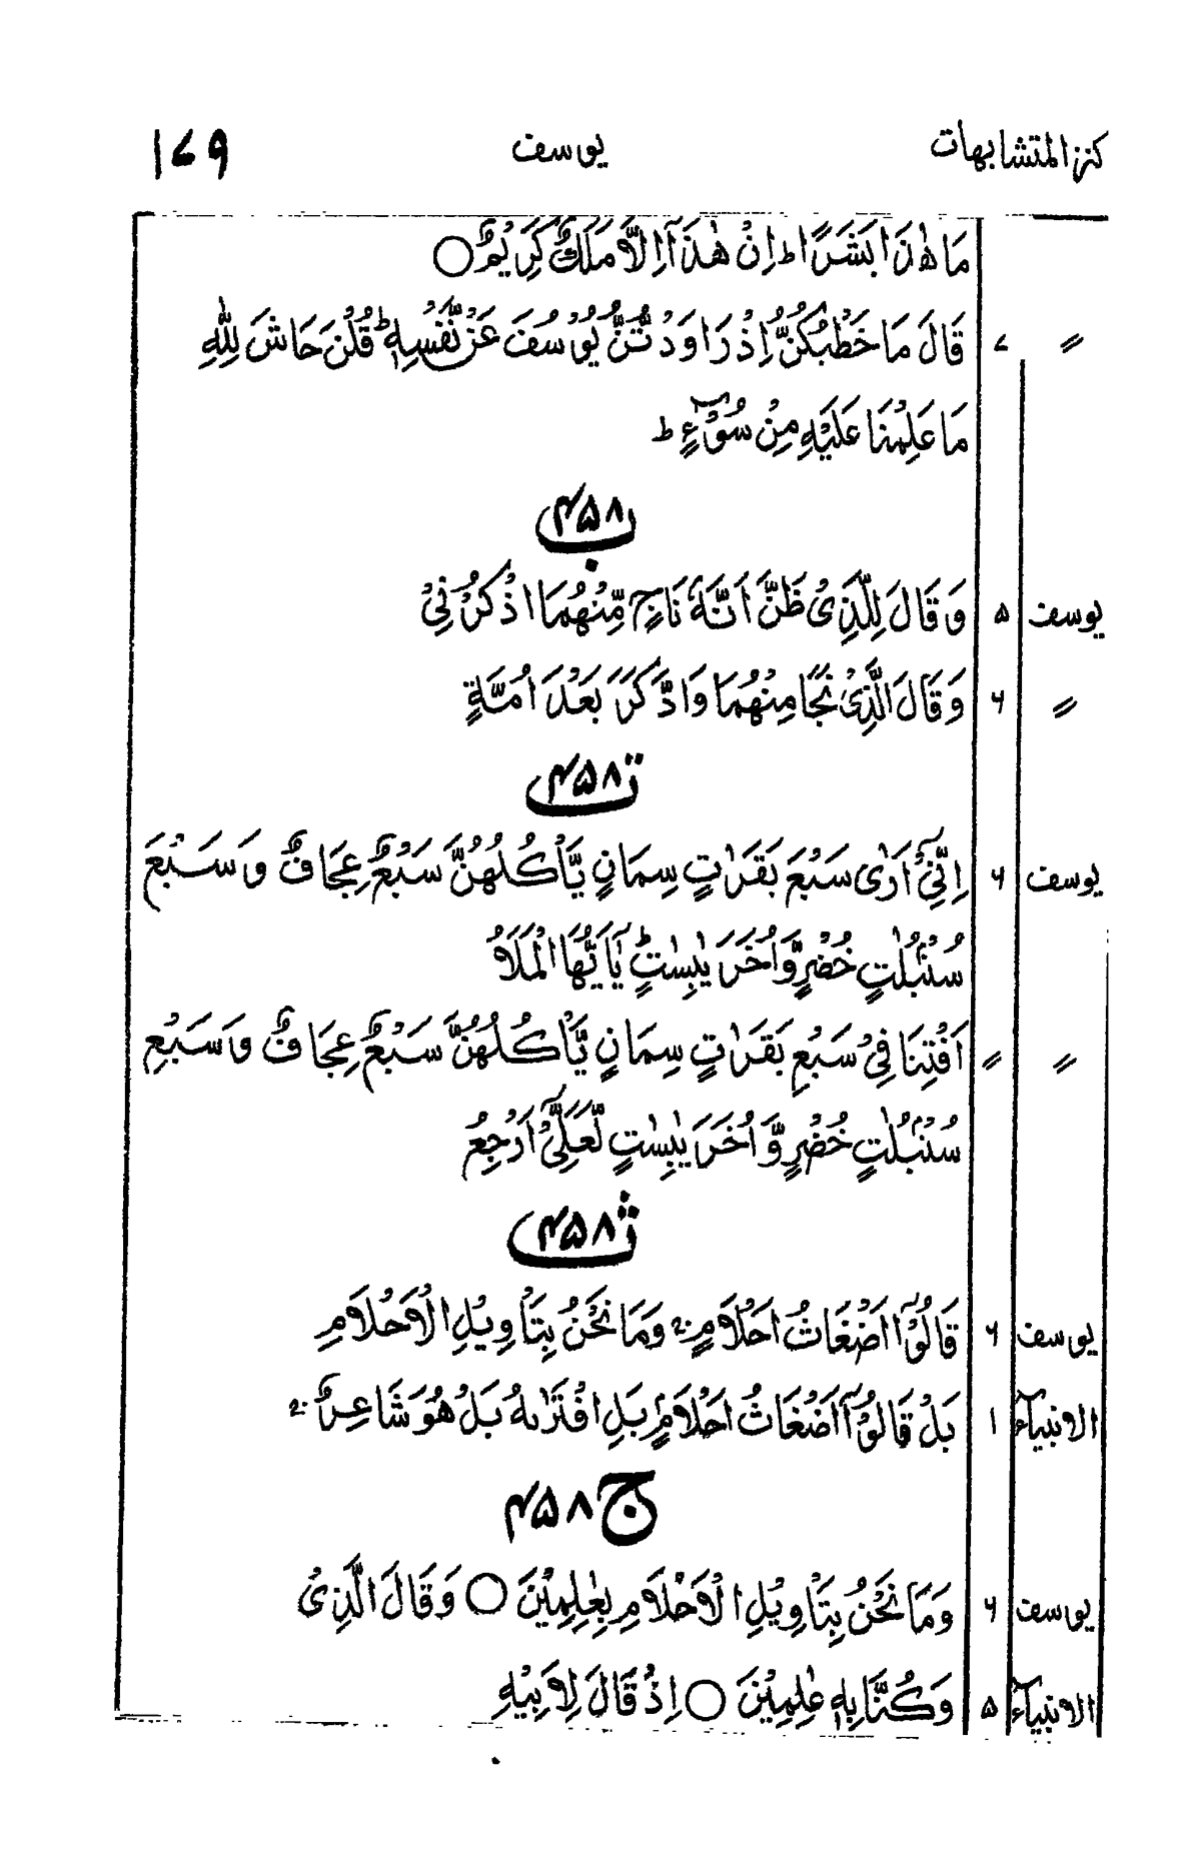 كنز المتشابهات يوسف ١٧٩
مَا هٰذَا بَشَرًا ط اِنْ هٰذَآ اِلَّا مَلَكٌ كَرِيْمٌ ○
〃 ٧ قَالَ مَا خَطْبُكُنَّ اِذْ رَاوَدْتُّنَّ يُوْسُفَ عَنْ نَّفْسِهٖ ؕ قُلْنَ حَاشَ لِلّٰهِ
مَا عَلِمْنَا عَلَيْهِ مِنْ سُوْٓءٍ ط
٤٥٨ ب
يوسف ٥ وَقَالَ لِلَّذِىْ ظَنَّ اَنَّهٗ نَاجٍ مِّنْهُمَا اذْكُرْنِىْ
〃 ٦ وَقَالَ الَّذِىْ نَجَا مِنْهُمَا وَادَّكَرَ بَعْدَ اُمَّةٍ
٤٥٨ ت
يوسف ٦ اِنِّىْٓ اَرٰى سَبْعَ بَقَرٰتٍ سِمَانٍ يَّاْكُلُهُنَّ سَبْعٌ عِجَافٌ وَسَبْعَ
سُنْۢبُلٰتٍ خُضْرٍ وَّاُخَرَ يٰبِسٰتٍ ؕ يٰٓاَيُّهَا الْمَلَاُ
〃 〃 اَفْتِنَا فِىْ سَبْعِ بَقَرٰتٍ سِمَانٍ يَّاْكُلُهُنَّ سَبْعٌ عِجَافٌ وَسَبْعِ
سُنْۢبُلٰتٍ خُضْرٍ وَّاُخَرَ يٰبِسٰتٍ لَّعَلِّىْٓ اَرْجِعُ
٤٥٨ ث
يوسف ٦ قَالُوْٓا اَضْغَاثُ اَحْلَامٍ ۚ وَمَا نَحْنُ بِتَاْوِيْلِ الْاَحْلَامِ
الانبيآء ١ بَلْ قَالُوْٓا اَضْغَاثُ اَحْلَامٍ بَلِ افْتَرٰىهُ بَلْ هُوَ شَاعِرٌ ۚ
٤٥٨ ج
يوسف ٦ وَمَا نَحْنُ بِتَاْوِيْلِ الْاَحْلَامِ بِعٰلِمِيْنَ ○ وَقَالَ الَّذِىْ
الانبيآء ٥ وَكُنَّا بِهٖ عٰلِمِيْنَ ○ اِذْ قَالَ لِاَبِيْهِ